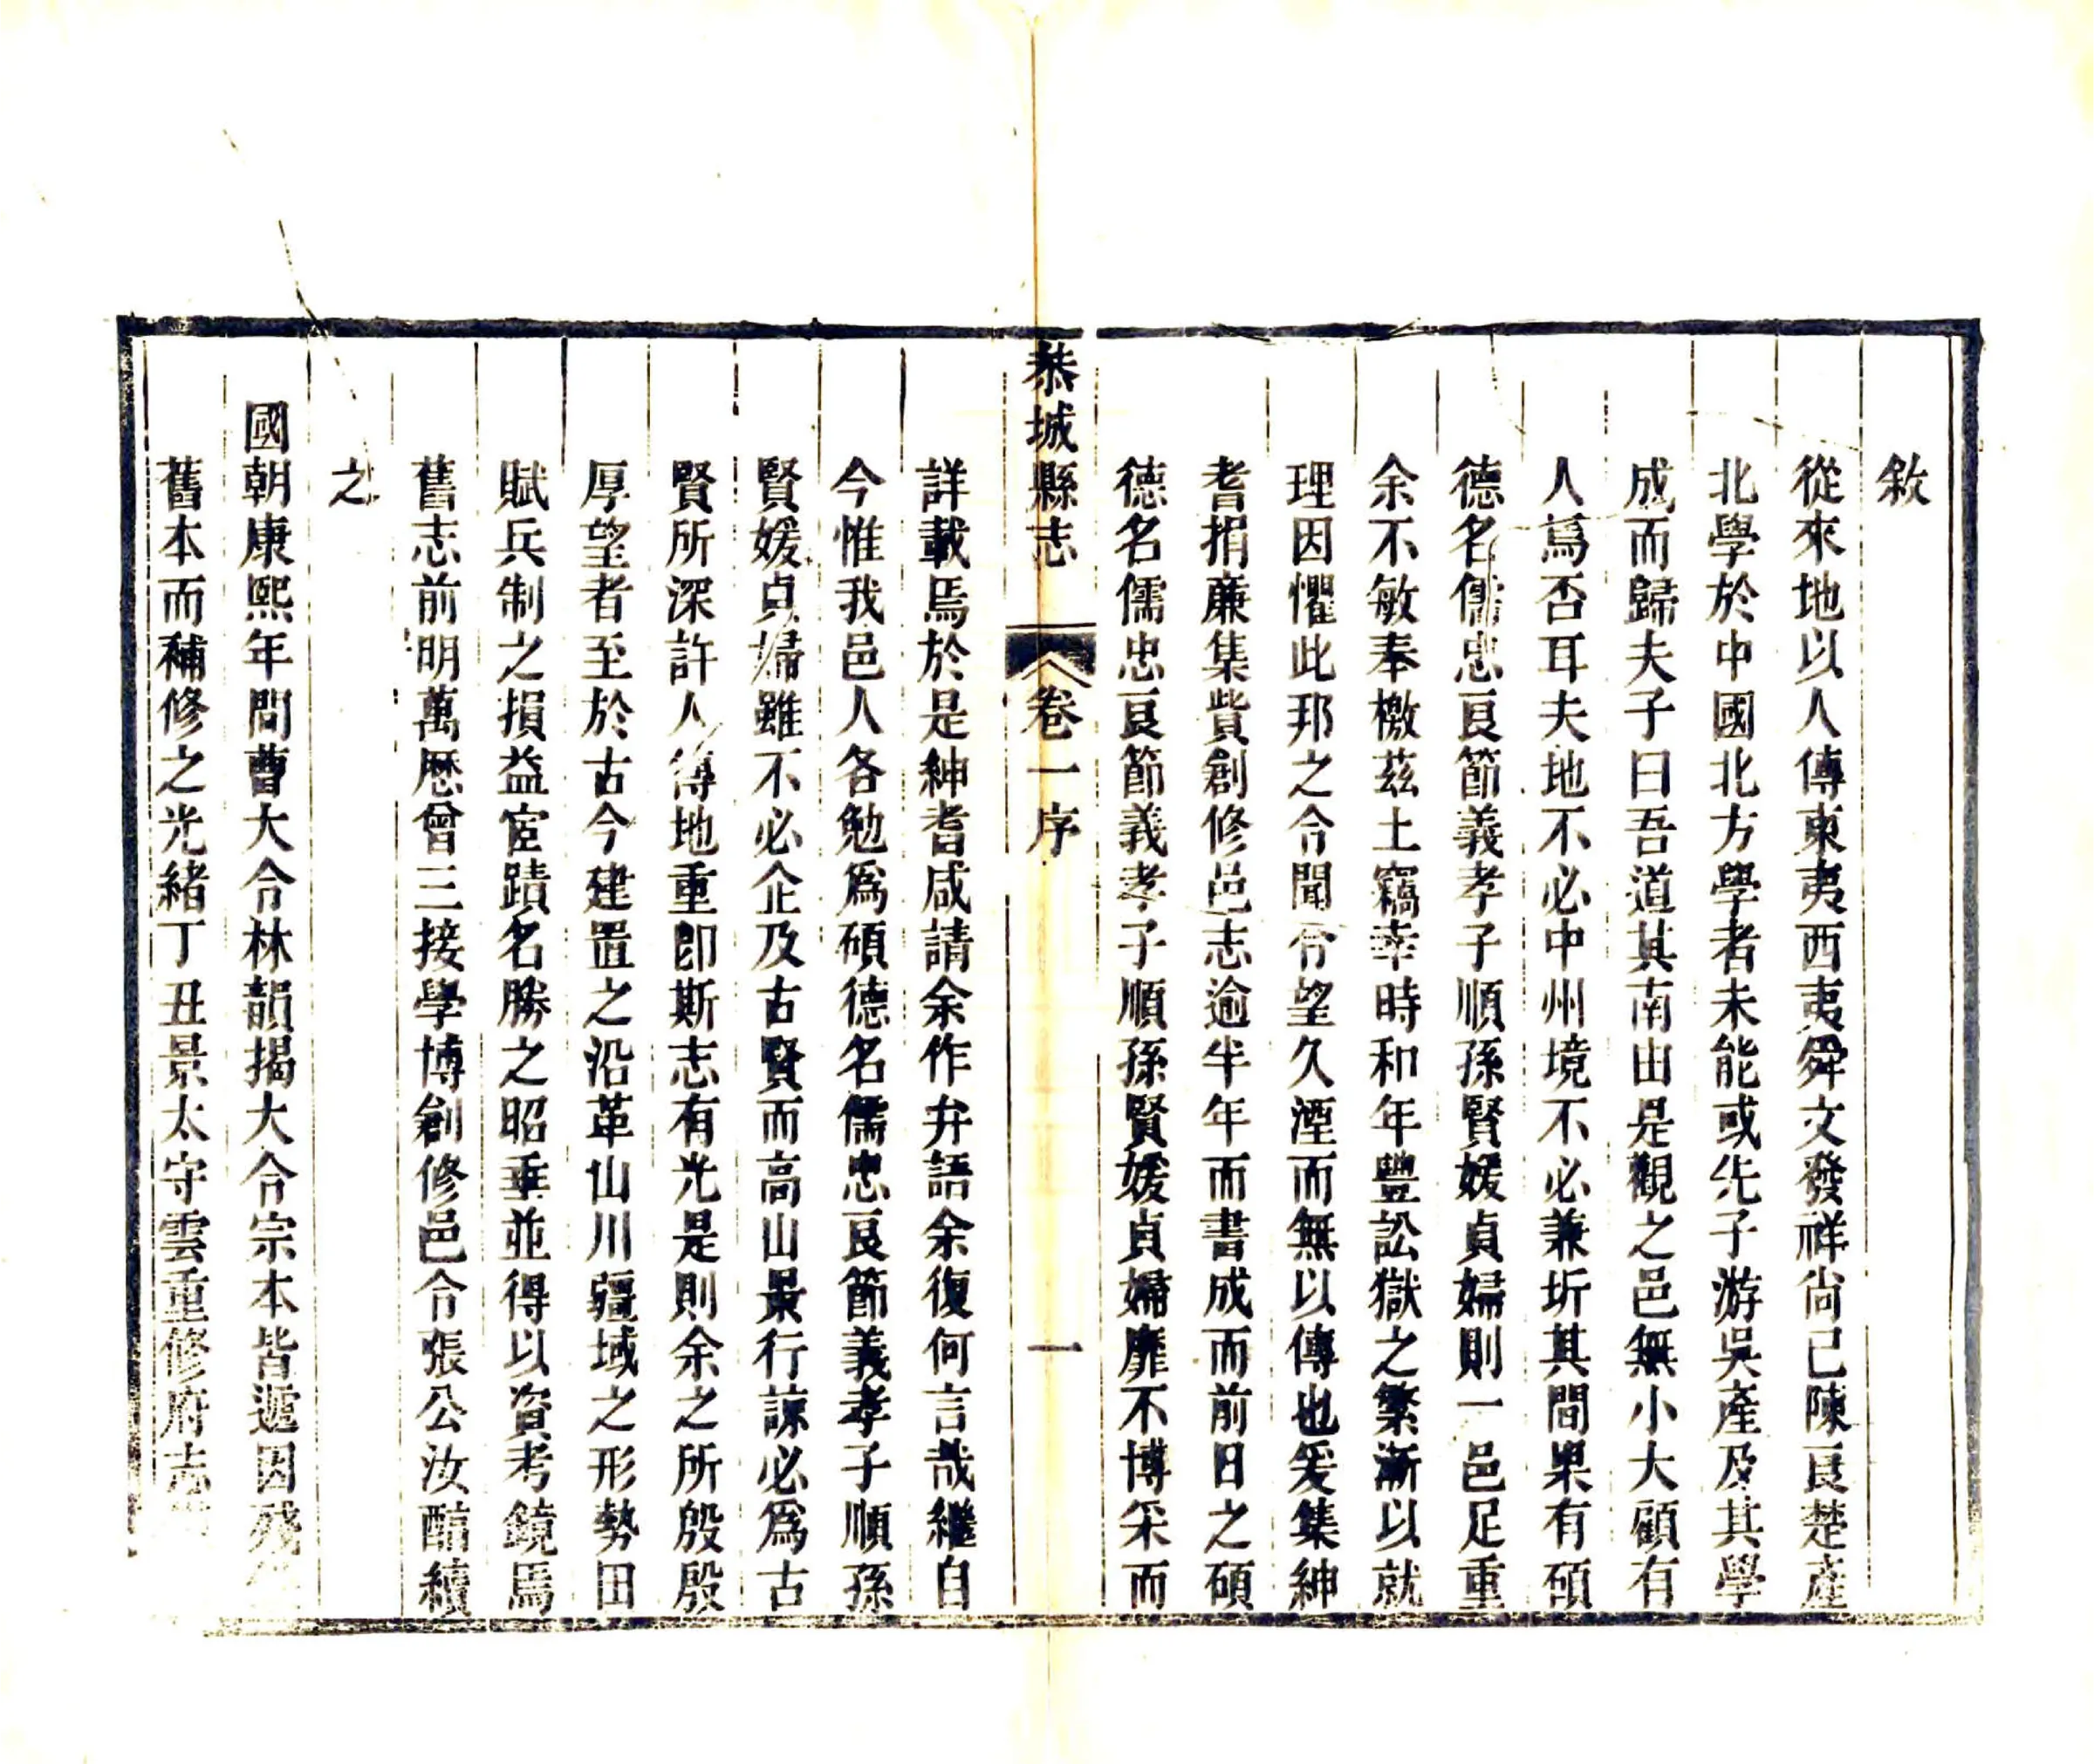 敘
從來地以人傳東夷西夷舜文發祥尚已陳良楚產
北學於中國北方學者未能或先子游吳產及其學
成而歸夫子曰吾道其南由是觀之邑無小大顧有
人爲否耳夫地不必中州境不必兼圻其間果有碩
德名儒忠良節義孝子順孫賢媛貞婦則一邑足重
余不敏奉檄茲土竊幸時和年豐訟獄之繁漸以就
理因懼此邦之令聞令望久湮而無以傳也爰集紳
耆捐廉集貲創修邑志逾半年而書成而前日之碩
德名儒忠良節義孝子順孫賢媛貞婦靡不博采而
恭城縣志 卷一序 一
詳載焉於是紳耆咸請余作弁語余復何言哉繼自
今惟我邑人各勉爲碩德名儒忠良節義孝子順孫
賢媛貞婦雖不必企及古賢而高山景行諒必爲古
賢所深許人傳地重即斯志有光是則余之所殷殷
厚望者至於古今建置之沿革山川疆域之形勢田
賦兵制之損益宦蹟名勝之昭垂並得以資考鏡焉
舊志前明萬厯曾三接學博創修邑令張公汝醕續
之
國朝康熙年間曹大令林韻揭大令宗本皆遞因殘
舊本而補修之光緒丁丑景太守雲重修府志